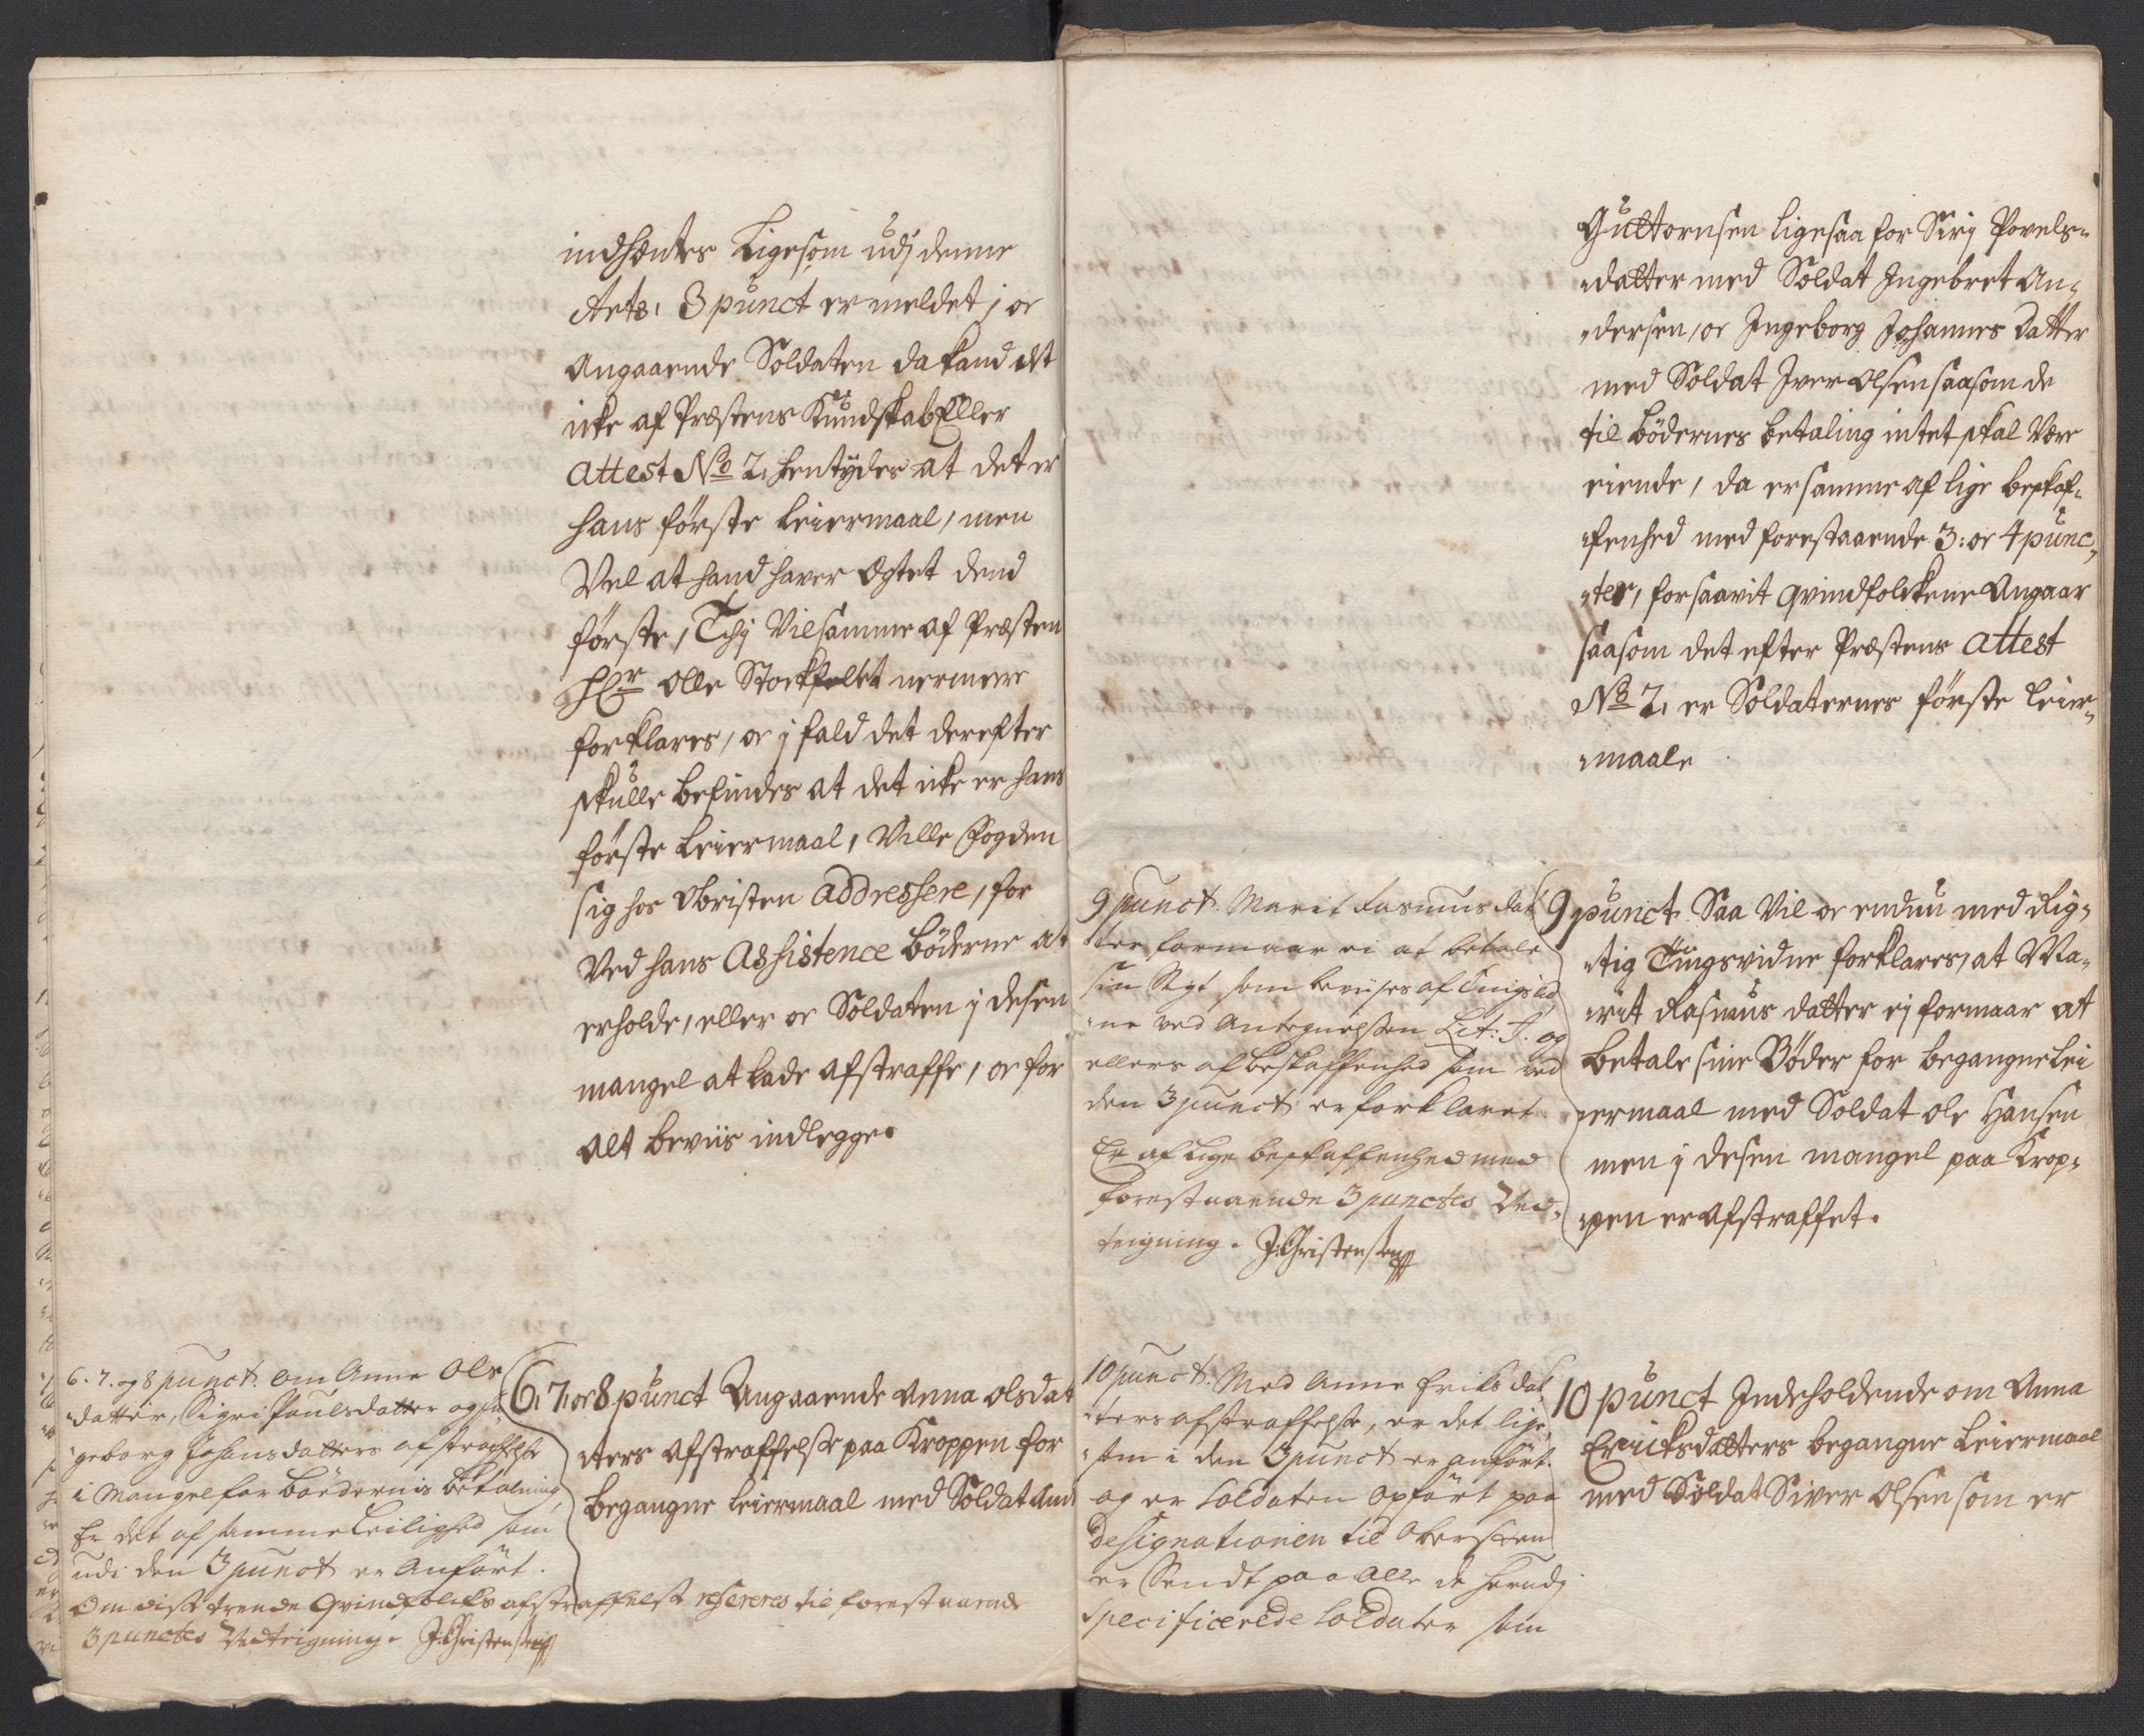 indhentes Ligesom udj denne
Acts, 3 punct er meldet, oc
Angaaende Soldaten da kand det
icke af Præstens Kundskab Eller
attest No 2, hentydes at det er
hans første Leiermaal, men
Vel at hand haver Ægtet dend
første, Thj Vil samme af Præsten
Hr Olle Stockfelet nermere
forklares, oc j fald det derefter
skulle befindes at det icke er hans
første Leiermaal, Ville Fogden
sig hos Obristen addressere, for
Ved hans Assistence bøderne at
erholde, eller oc Soldaten j desen
mangel at lade afstraffe, oc for
alt beviis indlegge.
6. 7. og 8 punct. om Anne Ols
datter, Sigri Paulsdatter og In
geborg Johansdatters afstraffelse
i Mangel for bødernis betalning,
Er det af samme Leilighed som
udi den 3 punct er Anført.
Om disse trende Qvindfolcks afstraffelse refereres til forestaaende
3 punctes Vedteigning. J. Christensen
6, 7, oc 8 punct Angaaende Anna olsdat
ters afstraffelse paa Kroppen for
begangne leiermaal med Soldat Am
Guttormsen ligesaa for Sirj Povels-
datter med Soldat Ingebret An-
dersen, oc Ingeborg Johannes datter
med Soldat Iver Olsen saasom de
til bødernes betaling intet skal Være
eiende, da er samme af lige beskaf-
fenhed med forestaaende 3: oc 4 punc-
ter, forsaavit qvindfolckene Angaar
saasom det efter Præstens attest
No 2, er Soldaternes første leier-
maale
9 punct. Marit Rasmus dat
ter formaar ei at betale
sin Sigt, som bevises af Tingsvid
ne ved Antegnelsen Lit: J. og
ellers af beskaffenhed som ved
den 3 punct er forklaret
Er af Lige beskaffenhed med
forestaaende 3 punctes Ved-
teigning. J. Christensen
9 punct. Saa Vil oc enduu med Rig-
tig Tingsvidne forklares, at Ma-
rit Rasmus datter ej formaar at
betale sine Bøder for begangne Lei
ermaal med Soldat ole Hansen
men j desen mangel paa Krop-
pen er afstraffet.
10 punct. Med Anne Eriks dat
ters afstraffelse, er det lige
som i den 3 punct er anført.
og er Soldaten opført paa
designationen til Obersten
er Sendt paa alle de
specificerede Soldater som
10 punct Indeholdende om Anna
Ericksdatters begangne Leiermaal
med Soldat Siver Olsen som er